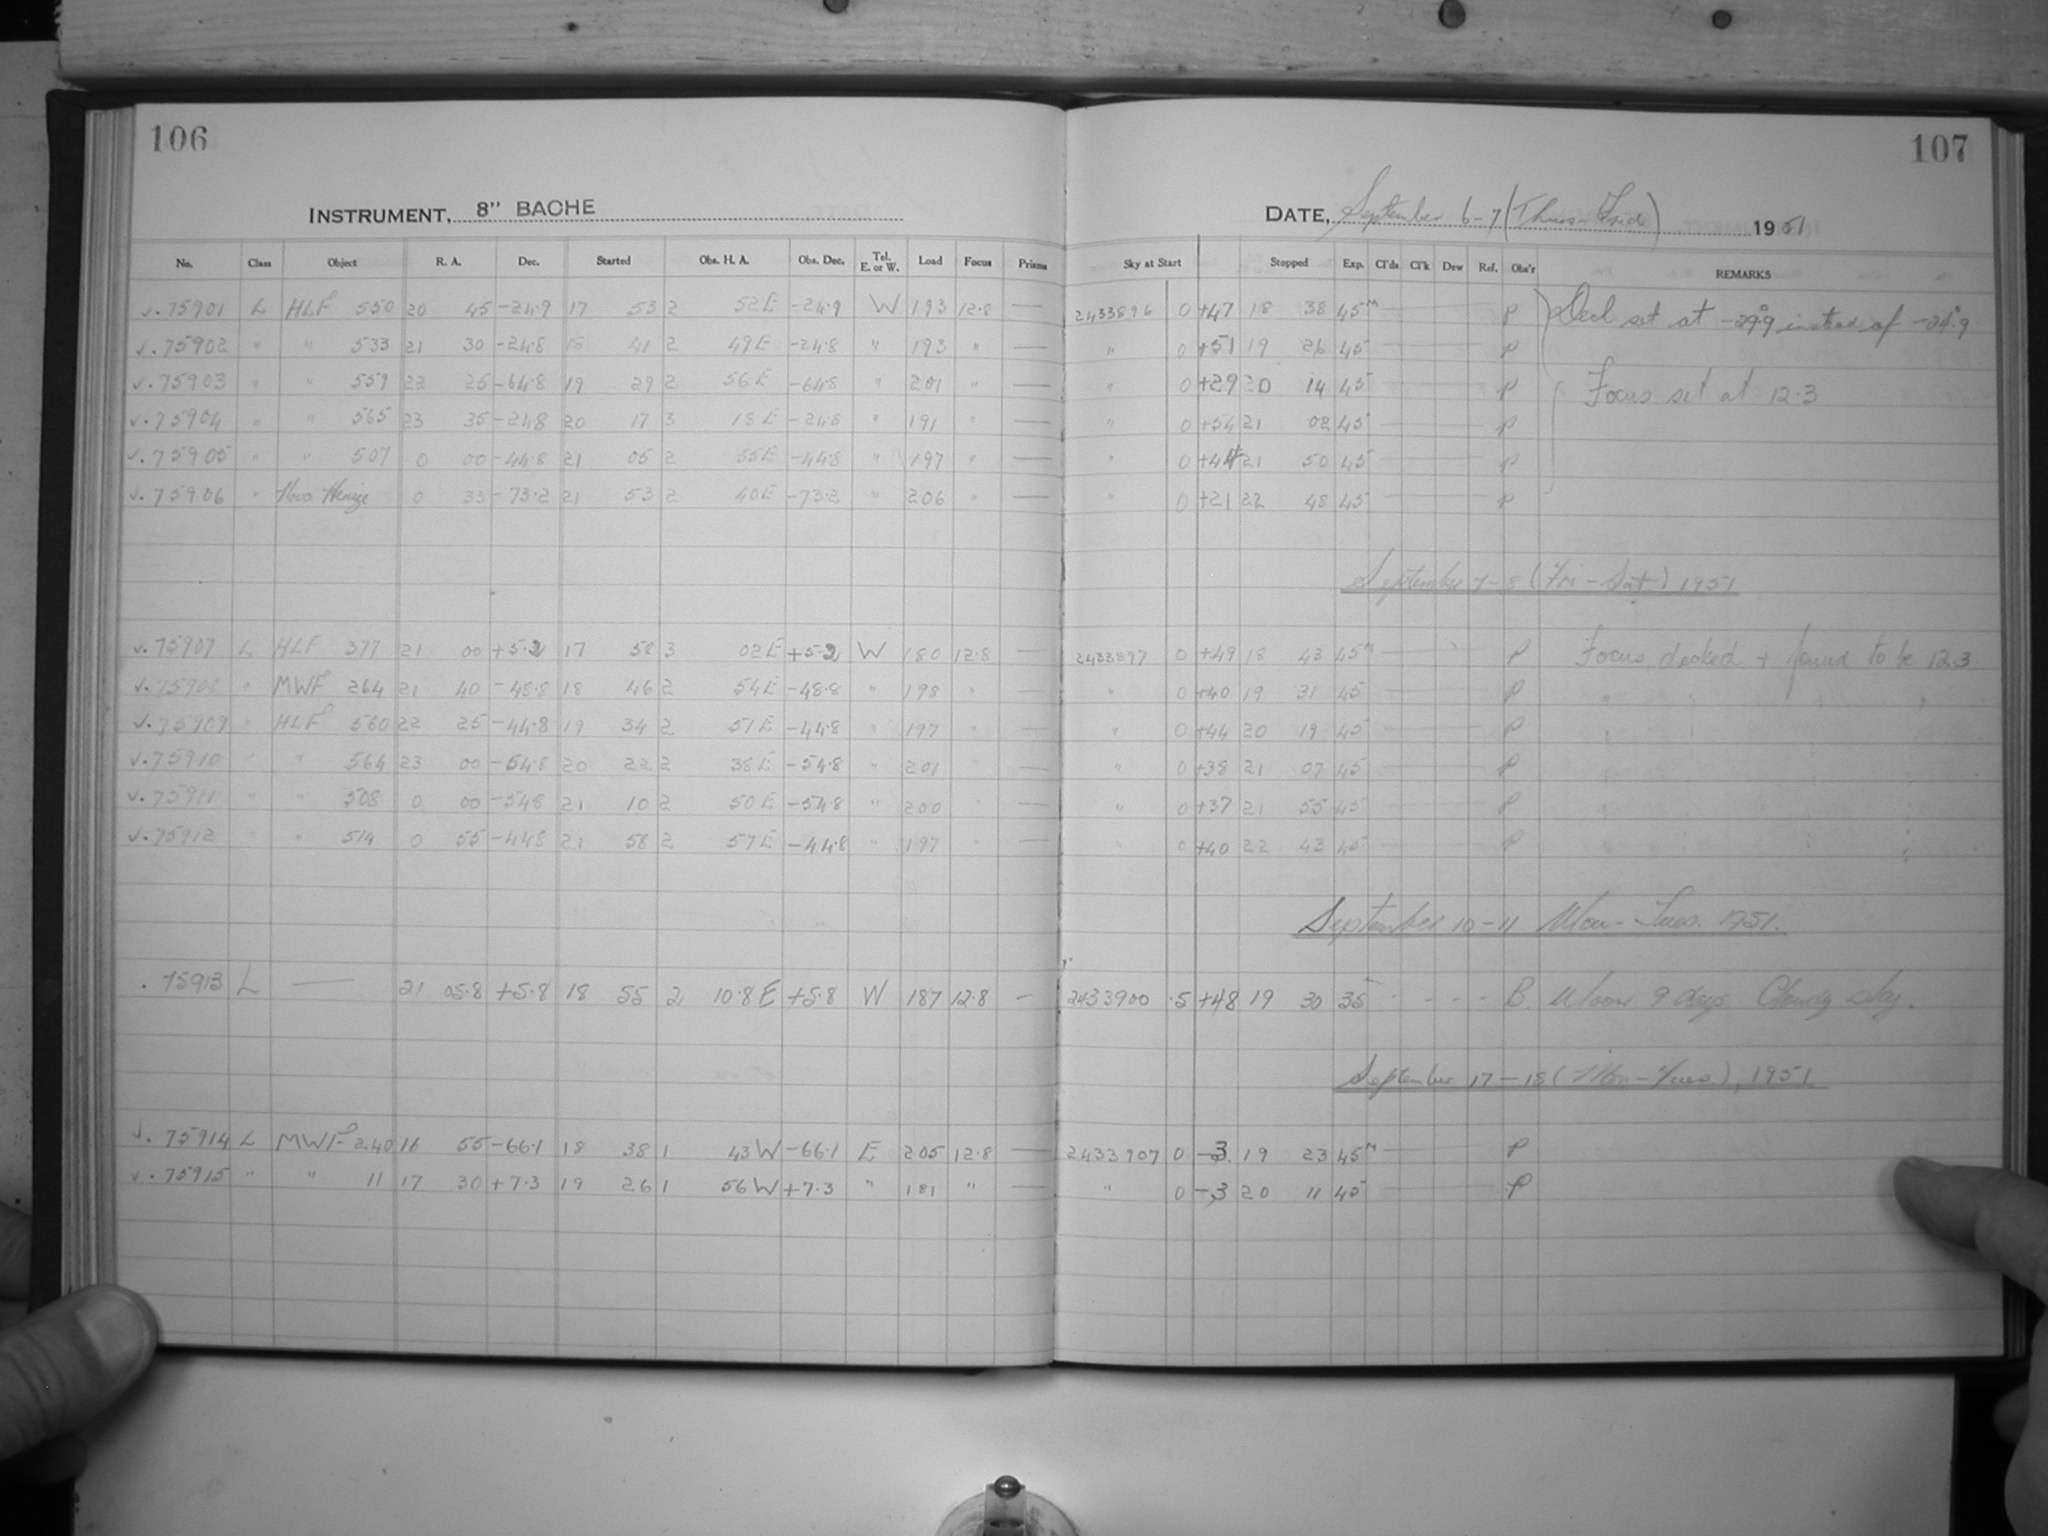 106
107
INSTRUMENT, 8" BACHE
DATE, September 6-7 (Thurs-Frid) 1951
No. Class Object R. A. Dec. Started Obs. H. A. Obs. Dec. Tel. E. or W. Load Focus Prisms Sky at Start Stopped Exp. Cl'ds Cl'k Dew Ref. Obs'r REMARKS
√. 75901 L HLF 550 20 45 -24.9 17 53 2 52E -24.9 W 193 12.8 — 2433896 0 +47 18 38 45M — P Decl set at -29°.9 instead of -24°.9
√. 75902 " " 533 21 30 -24.8 18 41 2 49E -24.8 " 193 " — " 0 +51 19 26 45 — P
√. 75903 " " 559 22 25 -64.8 19 29 2 56E -64.8 " 201 " — " 0 +29 20 14 45 — P Focus set at 12.3
√. 75904 " " 565 23 35 -24.8 20 17 3 18E -24.8 " 191 " — " 0 +54 21 02 45 — P
√. 75905 " " 507 0 00 -44.8 21 05 2 55E -44.8 " 197 " — " 0 +44 21 50 45 — P
√. 75906 " 0 33 -73.2 21 53 2 40E -73.2 " 206 " — " 0 +21 22 48 45 — P
September 7-8 (Fri-Sat.) 1951
√. 75907 L HLF 377 21 00 +5.2 17 58 3 02E +5.2 W 180 12.8 — 2433897 0 +49 18 43 45M — P Focus checked + found to be 12.3
√. 75908 " MWF 264 21 40 -48.8 18 46 2 54E -48.8 " 198 " — " 0 +40 19 31 45 — P " " " "
√. 75909 " HLF 560 22 25 -44.8 19 34 2 51E -44.8 " 197 " — " 0 +44 20 19 45 — P " " " "
√. 75910 " " 564 23 00 -54.8 20 22 2 38E -54.8 " 201 " — " 0 +38 21 07 45 — P " "
√. 75911 " " 508 0 00 -54.8 21 10 2 50E -54.8 " 200 " — " 0 +37 21 55 45 — P " "
√. 75912 " " 514 0 55 -44.8 21 58 2 57E -44.8 " 197 " — " 0 +40 22 43 45 — P " "
September 10-11 Mon-Tues. 1951.
. 75913 L — 21 05.8 +5.8 18 55 2 10.8E +5.8 W 187 12.8 — 2433900 .5 +48 19 30 35 - - - - B. Moon 9 days Cloudy sky.
September 17-18 (Mon-Tues), 1951
√. 75914 L MWF 240 16 55 -66.1 18 38 1 43W -66.1 E 205 12.8 — 2433907 0 -3 19 23 45M — P
√. 75915 " " 11 17 30 +7.3 19 26 1 56W +7.3 " 181 " — " 0 -3 20 11 45 — P